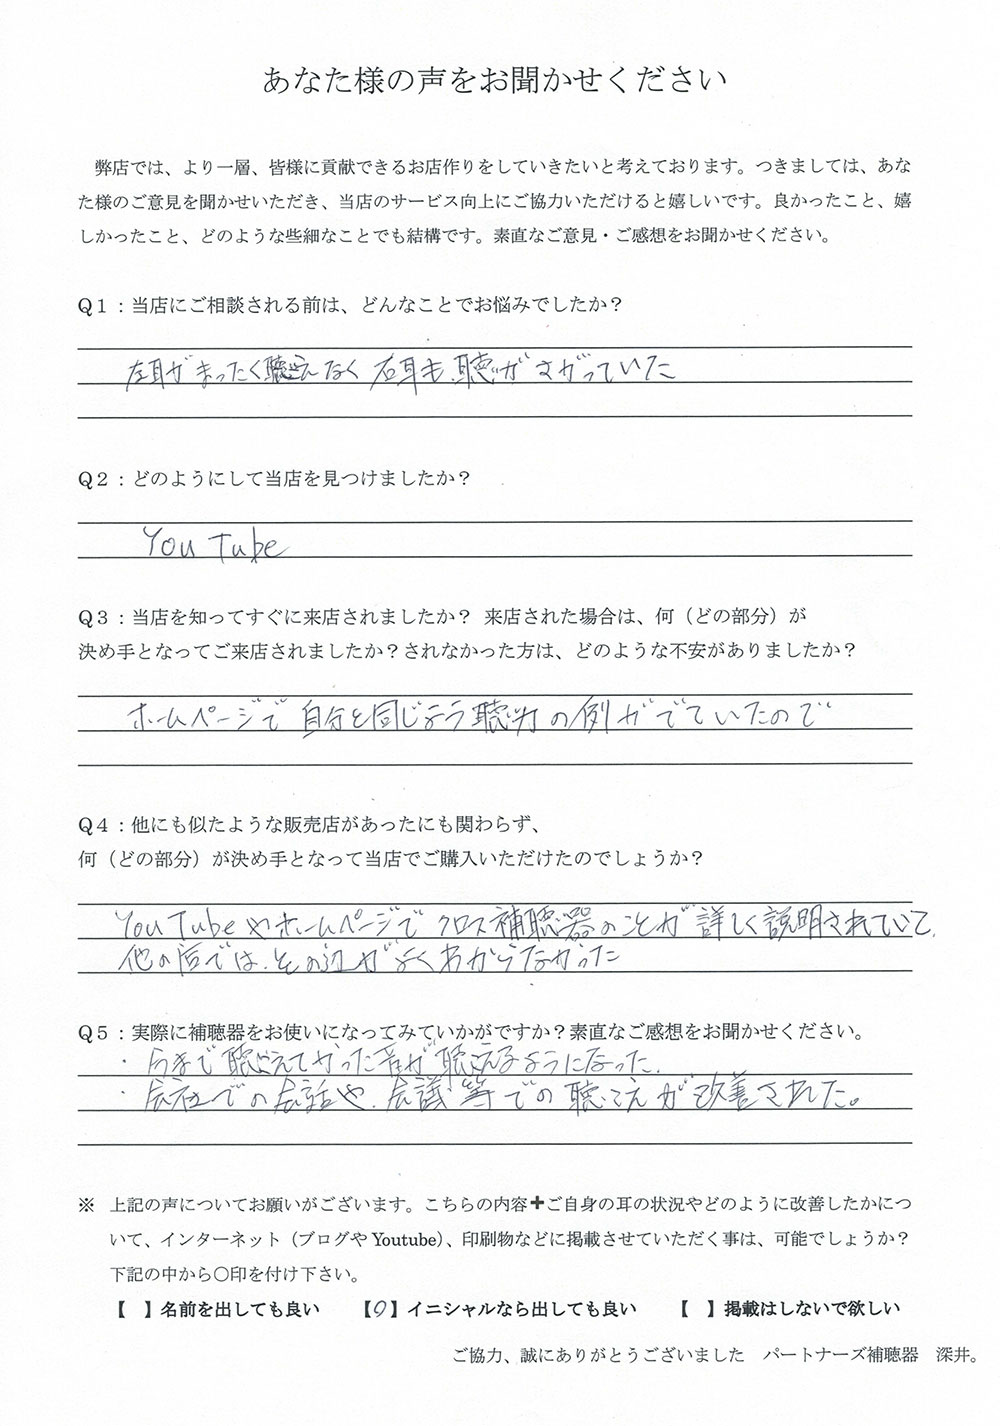 あなた様の声をお聞かせください
弊店では、より一層、皆様に貢献できるお店作りをしていきたいと考えております。つきましては、あな
た様のご意見を聞かせいただき、当店のサービス向上にご協力いただけると嬉しいです。良かったこと、嬉
しかったこと、どのような些細なことでも結構です。素直なご意見・ご感想をお聞かせください。
Q1：当店にご相談される前は、どんなことでお悩みでしたか？
左耳がまったく聴こえなく 右耳も、聴が さがっていた
Q2：どのようにして当店を見つけましたか？
You Tube
Q3：当店を知ってすぐに来店されましたか？ 来店された場合は、何（どの部分）が
決め手となってご来店されましたか？されなかった方は、どのような不安がありましたか？
ホームページで 自分と同じよう聴力の例がでていたので
Q4：他にも似たような販売店があったにも関わらず、
何（どの部分）が決め手となって当店でご購入いただけたのでしょうか？
You Tubeやホームページで クロス補聴器のことが 詳しく説明されていて、
他の店では、その辺がよくわからなかった
Q5：実際に補聴器をお使いになってみていかがですか？素直なご感想をお聞かせください。
・今まで聴こえてかった音が 聴こえるようになった、
・会社での会話や、会議等での聴こえが改善された。
※ 上記の声についてお願いがございます。こちらの内容+ご自身の耳の状況やどのように改善したかにつ
いて、インターネット（ブログやYoutube）、印刷物などに掲載させていただく事は、可能でしょうか？
下記の中から〇印を付け下さい。
【 】名前を出しても良い 【〇】イニシャルなら出しても良い 【 】掲載はしないで欲しい
ご協力、誠にありがとうございました パートナーズ補聴器 深井。